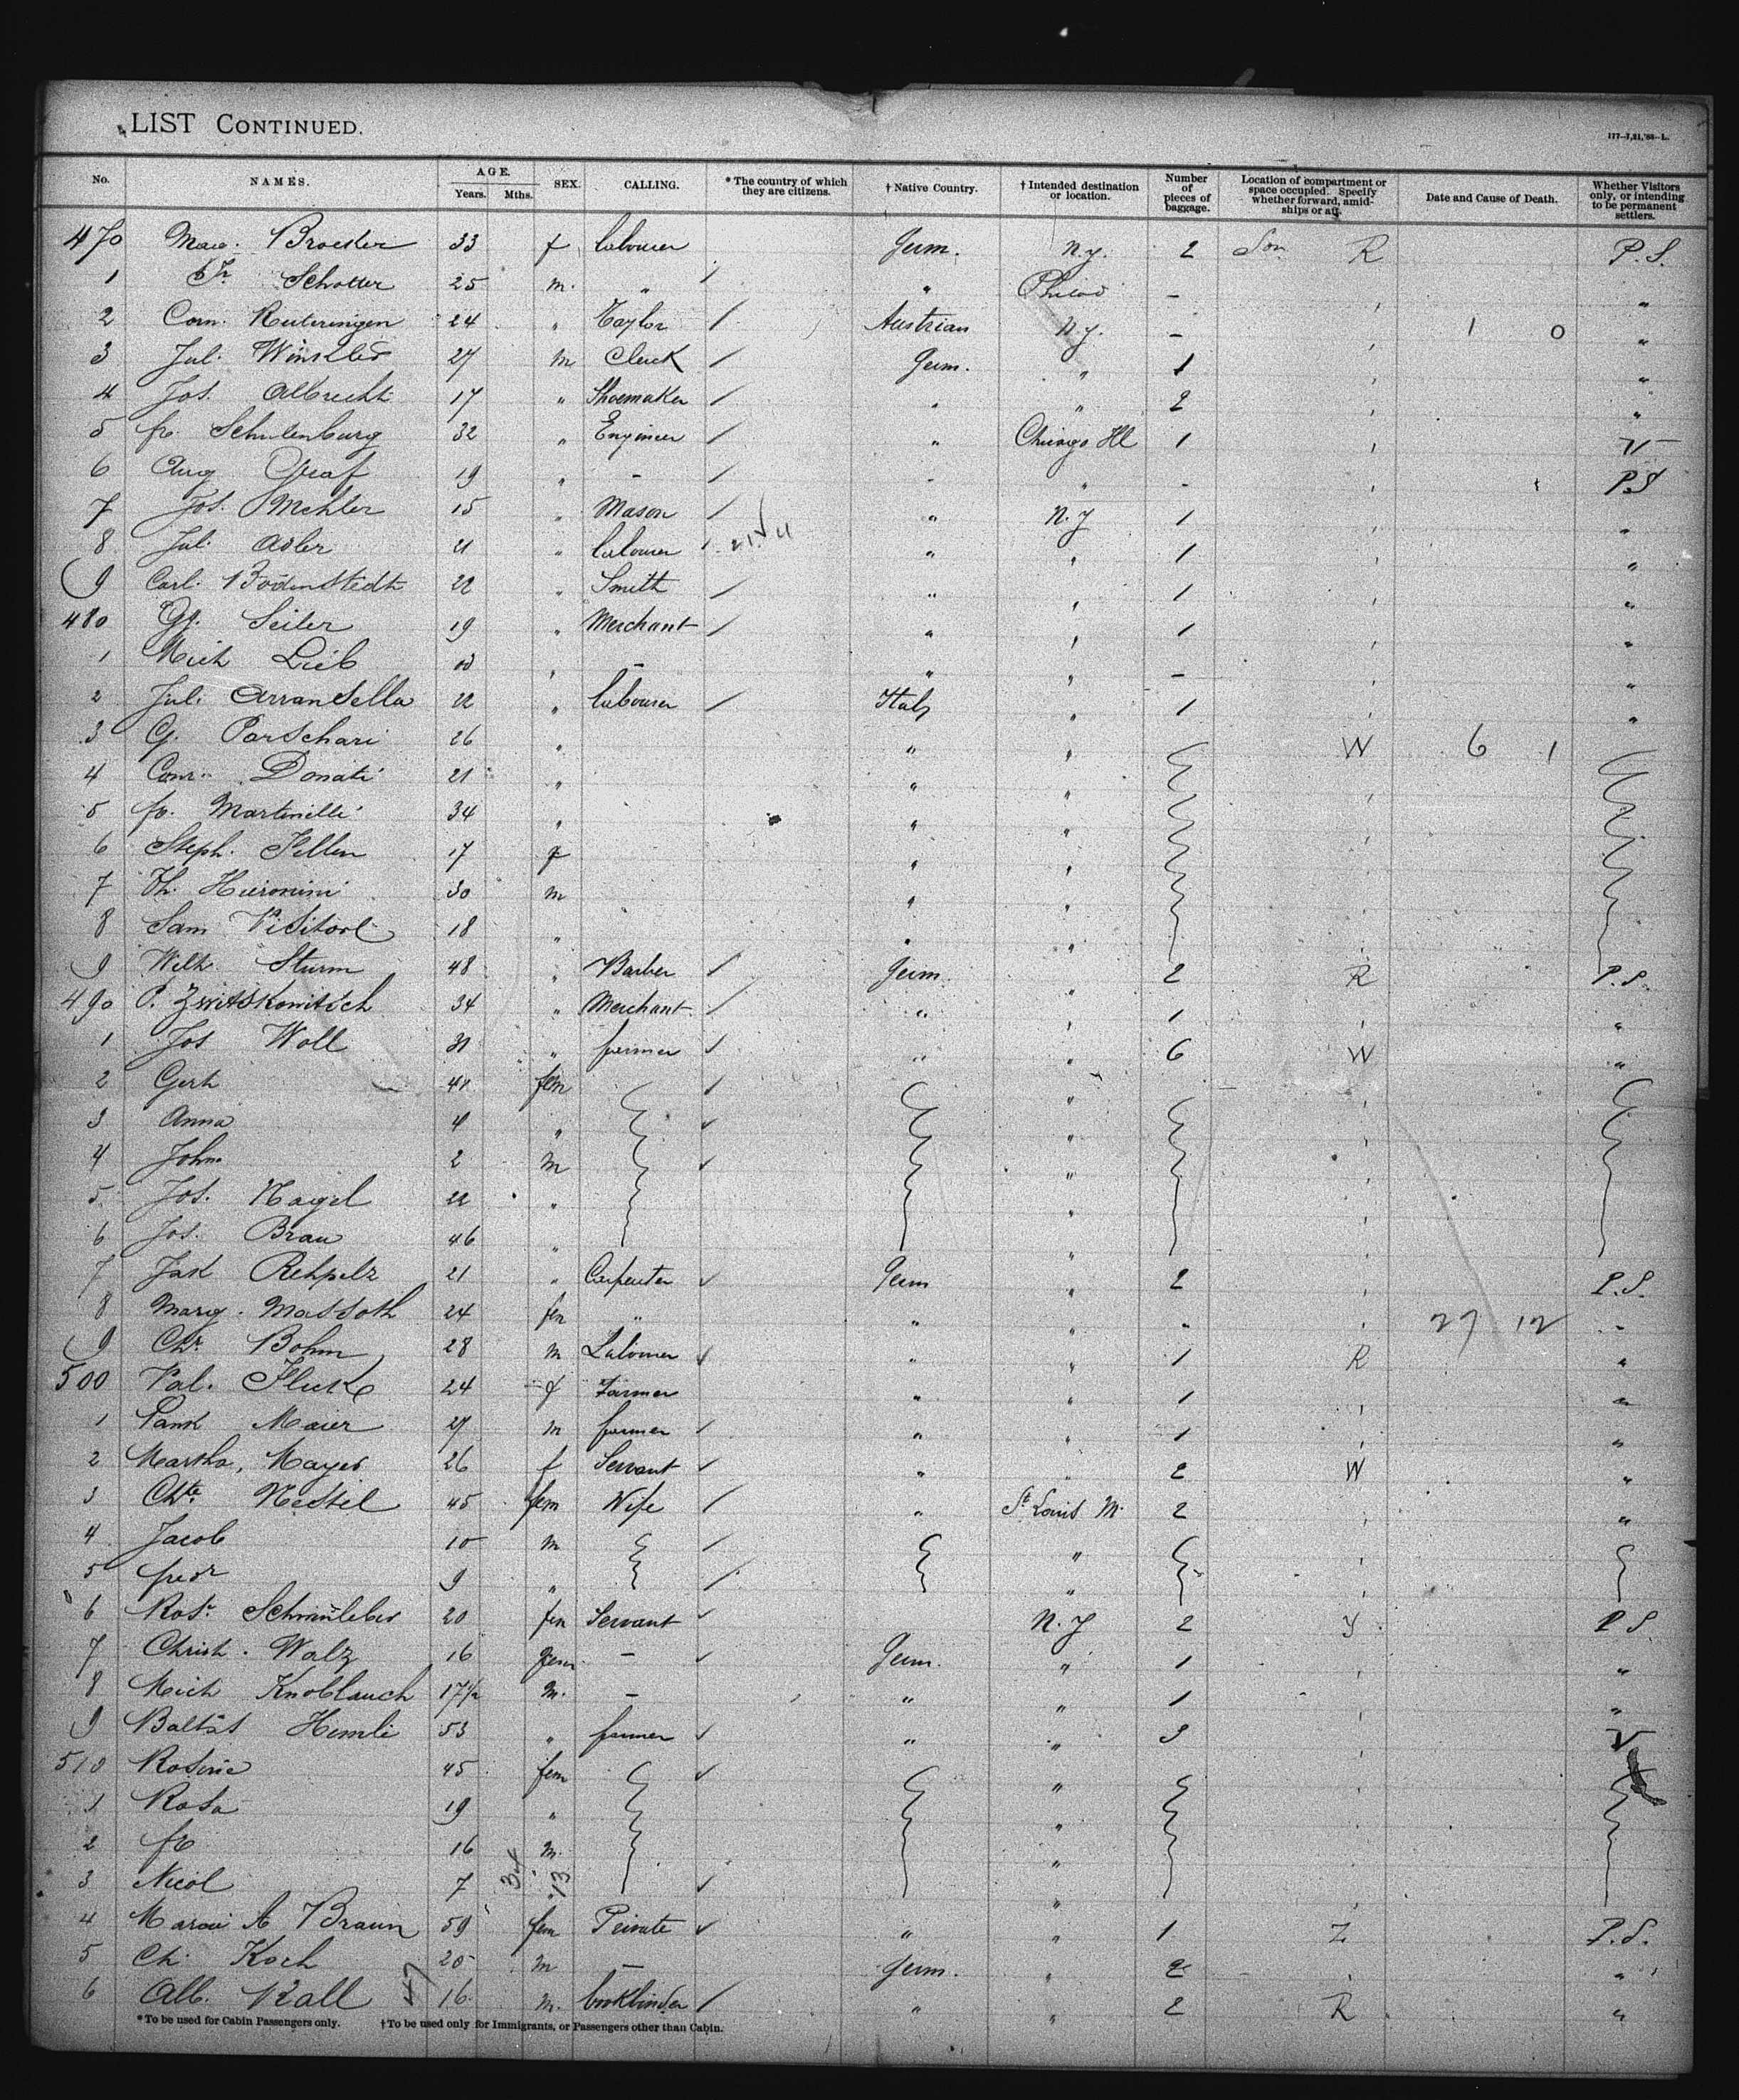 LIST CONTINUED.
No. NAMES. AGE. Years. Mths. SEX. CALLING. * The country of which they are citizens. † Native Country. † Intended destination or location. Number of pieces of baggage. Location of compartment or space occupied. Specify whether forward, amidships or aft. Date and Cause of Death. Whether Visitors only, or intending to be permanent settlers.
470 33 f labourer Germ. N.Y. 2 R P.S.
1 Schotter 25 m. " / " Philad - "
2 Corn. 24 " Taylor / Austrian N.Y. - 1 0 "
3 Jul. Winkler 27 m Clerk / Germ. " 1 "
4 Jos. Albrecht 17 " Shoemaker / " " 2 "
5 fr Schulenburg 32 " Engineer / " Chicago Ill 1 V
6 Aug Graf 19 " - / " " - P.S
7 Jos. Mehler 15 " Mason / " N.Y 1 "
8 Jul. Adler 21 " labourer / " " 1 "
9 Carl. Bodenstedt 22 " Smith / " " 1 "
480 Gg. Seiler 19 " Merchant / " " 1 "
1 Mich Lieb " - " " - "
2 Jul. 22 " labourer / Italy " 1 "
3 G. Parschari 26 " " " W 6 1
4 Donati 21 " " "
5 fr. Martinelli 34 " " "
6 Steph. 17 f " "
7 Th. Hieronimi 30 m " "
8 Sam 18 " " "
9 Wilh. Sturm 48 " Barber / Germ. " 2 R P.S.
490 P. 34 " Merchant / " " 1 "
1 Jos Woll 31 " farmer / " " 6 W "
2 Gerh fem "
3 Anna 4 " "
4 John 2 m "
5 Jos. Nagel 22 " "
6 Jos. Brau 46 " "
7 Jak Rehpelz 21 " Carpenter Germ " 2 P.S.
8 Marg. Massoth 24 fem " " " - 27 12 "
9 Chr. Bohm 28 m Labourer " " 1 R "
500 Val. 24 f Farmer " " 1 "
1 Pank Maier 27 m farmer / " " 1 "
2 Martha Mayer 26 f Servant " " 2 W "
3 Chte. Nestel 45 fem Wife / " St. Louis M. 2 "
4 Jacob 10 m / "
5 fredr 9 " / "
6 Ros. 20 fem Servant N.Y 2 P S.
7 Christ. Walz 16 fem - Germ. " 1 "
8 Mich Knoblauch 17½ m. - " " 1 "
9 Balts Hemli 53 " farmer " " 3 V
510 Rosine 45 fem "
1 Rosa 19 " "
2 fr 16 m. "
3 Nicol 7 " "
4 A Braun 59 fem Private " " 1 Z P.S.
5 Ch. Koch 20 m - Germ. " 2 "
6 Alb. Kall 16 m. bookbinder / " " 2 R "
*To be used for Cabin Passengers only. †To be used only for Immigrants, or Passengers other than Cabin.